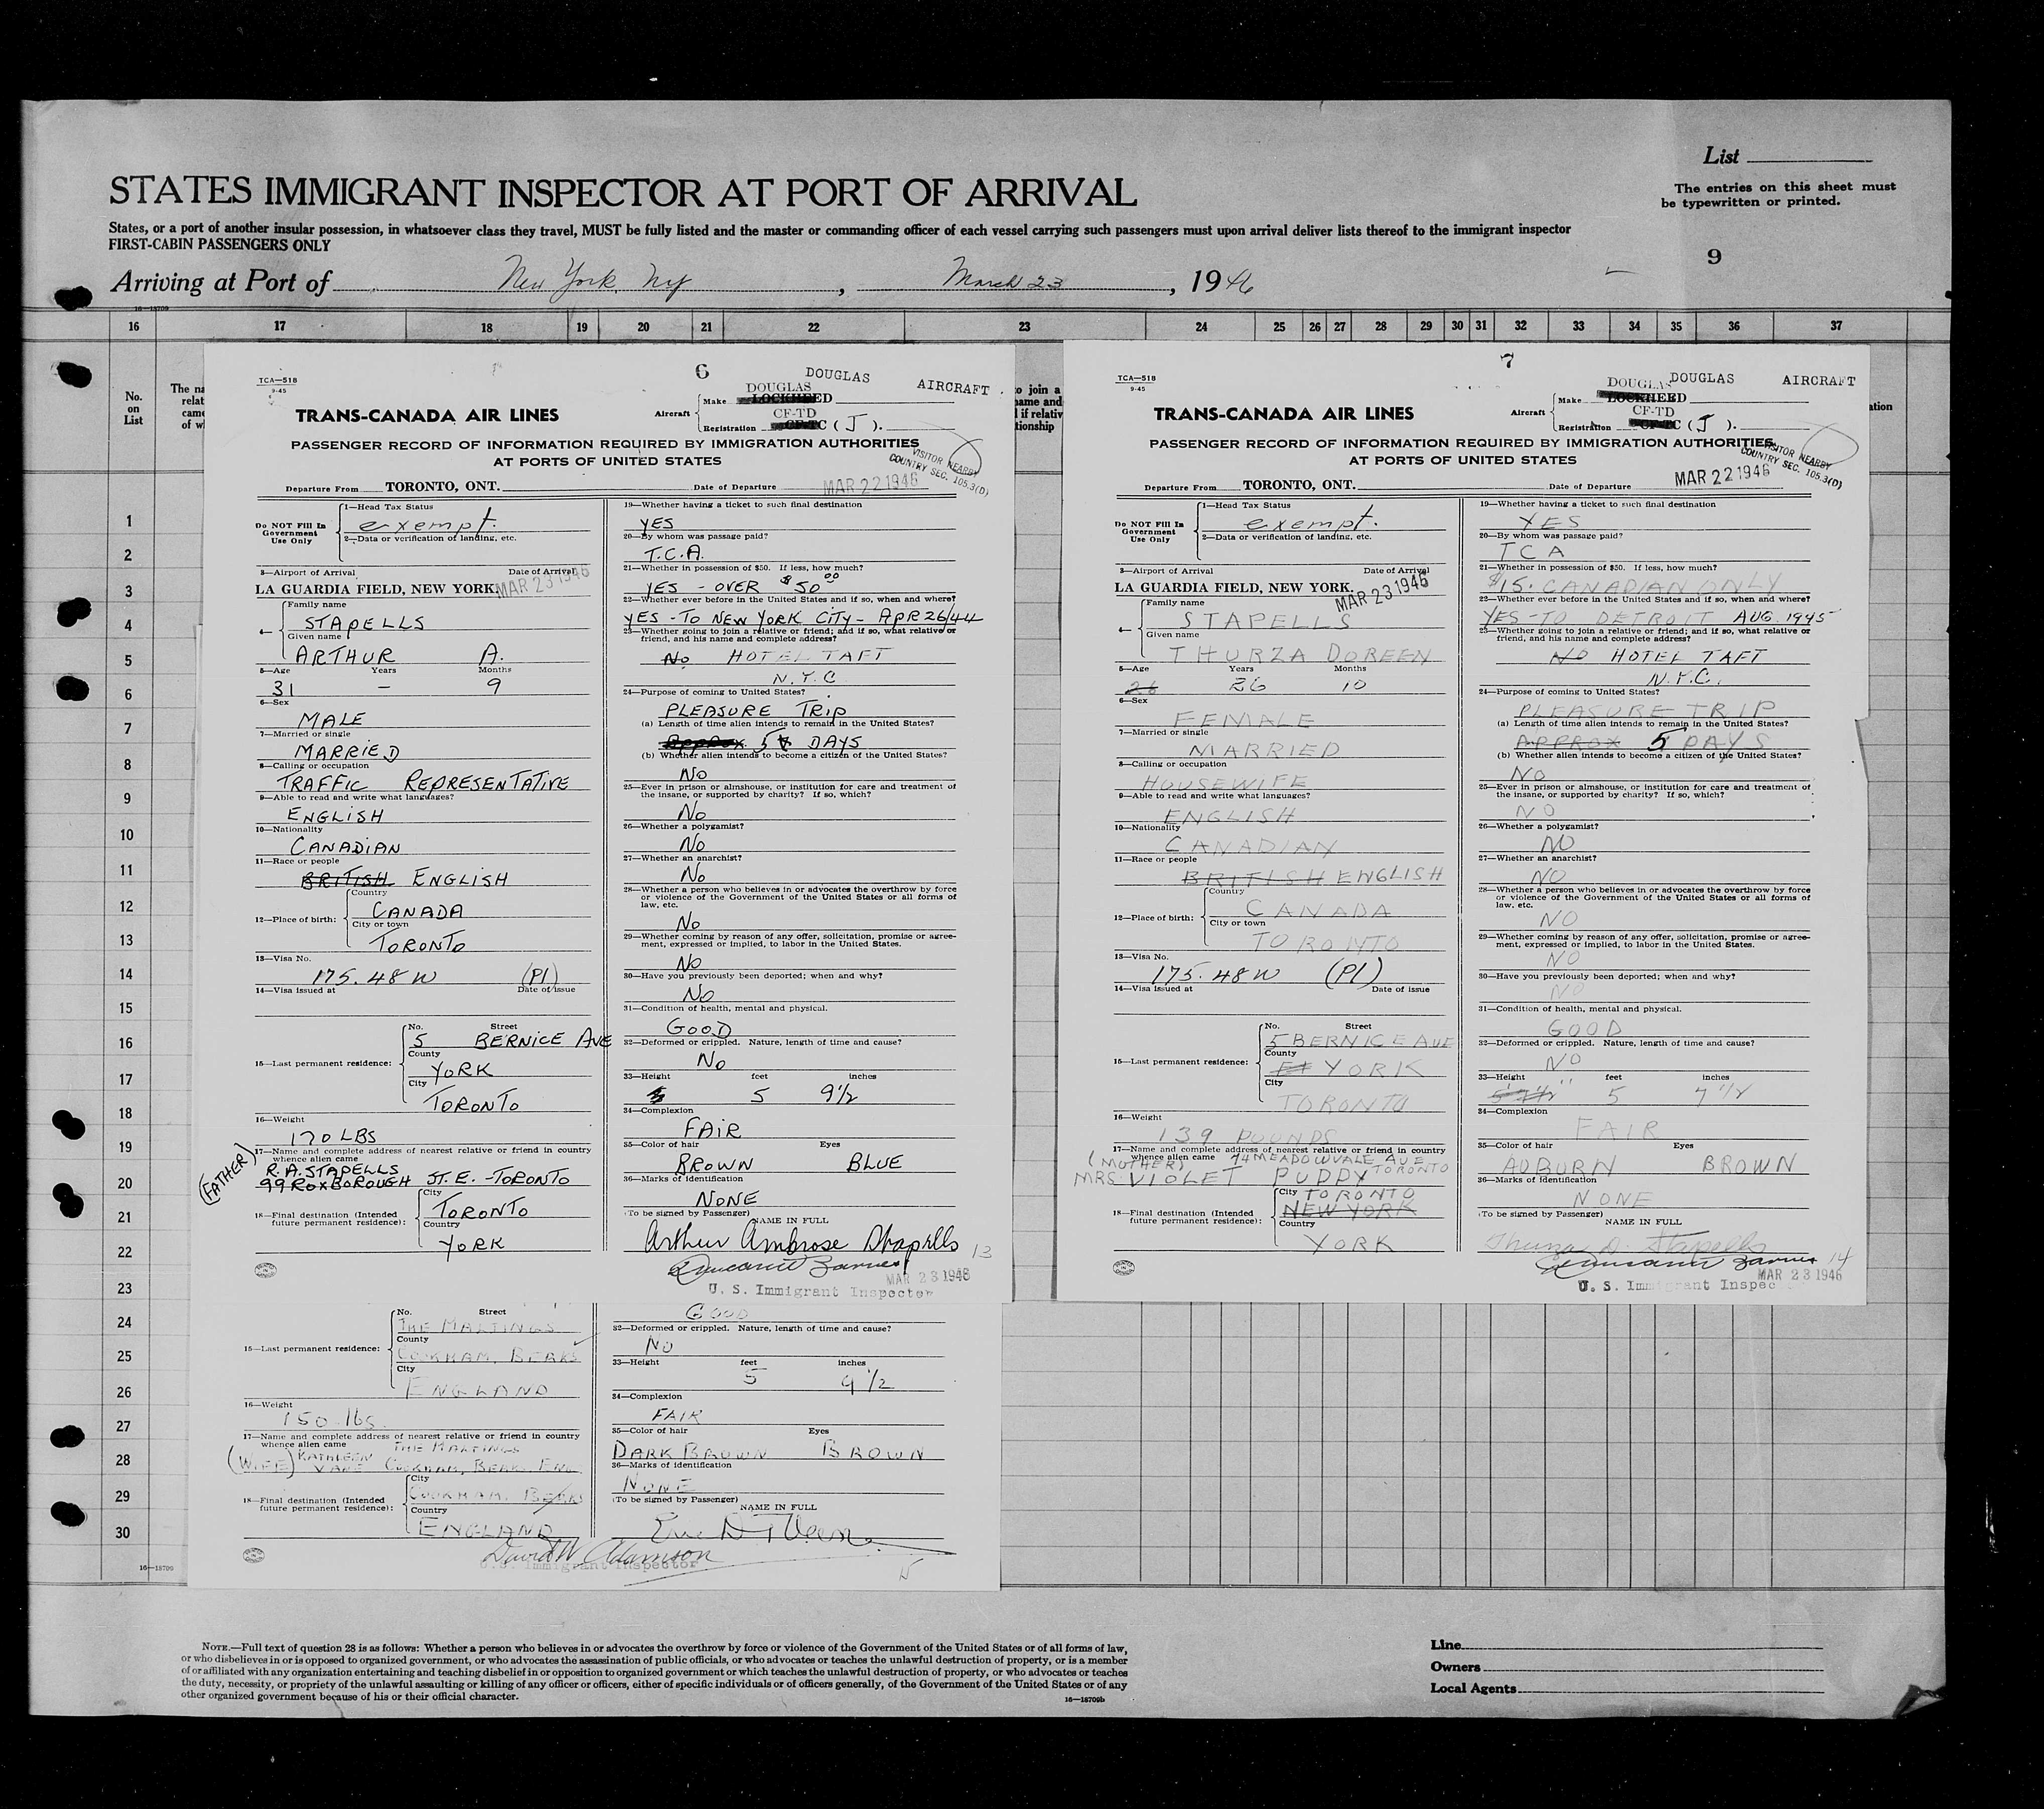 List
STATES IMMIGRANT INSPECTOR AT PORT OF ARRIVAL
The entries on this sheet must
be typewritten or printed.
States, or a port of another insular possession, in whatsoever class they travel, MUST be fully listed and the master or commanding officer of each vessel carrying such passengers must upon arrival deliver lists thereof to the immigrant inspector
FIRST-CABIN PASSENGERS ONLY
9
Arriving at Port of New York, NY, March 23, 1946
16—18709
16 17 18 19 20 21 22 23 24 25 26 27 28 29 30 31 32 33 34 35 36 37
No.
on
List
1
2
3
4
5
6
7
8
9
10
11
12
13
14
15
16
17
18
19
20
21
22
23
24
25
26
27
28
29
30
16—18709
6
TCA—518
9-45
DOUGLAS AIRCRAFT
DOUGLAS
Make LOCKHEED
CF-TD
Aircraft
Registration CF-TC (J).
TRANS-CANADA AIR LINES
PASSENGER RECORD OF INFORMATION REQUIRED BY IMMIGRATION AUTHORITIES
AT PORTS OF UNITED STATES
VISITOR NEARBY
COUNTRY SEC. 105.3(D)
Departure From TORONTO, ONT. Date of Departure MAR 22 1946
Do NOT Fill In
Government
Use Only
1—Head Tax Status
exempt.
2—Data or verification of landing, etc.
3—Airport of Arrival Date of Arrival
LA GUARDIA FIELD, NEW YORK. MAR 23 1946
4—
Family name
STAPELLS
Given name
ARTHUR A.
5—Age Years Months
31 – 9
6—Sex
MALE
7—Married or single
MARRIED
8—Calling or occupation
TRAFFIC REPRESENTATIVE
9—Able to read and write what languages?
ENGLISH
10—Nationality
CANADIAN
11—Race or people
BRITISH ENGLISH
12—Place of birth:
Country
CANADA
City or town
TORONTO
13—Visa No.
175.48W (P1)
14—Visa issued at Date of issue
15—Last permanent residence:
No. Street
5 BERNICE AVE
County
YORK
City
TORONTO
16—Weight
170 LBS
17—Name and complete address of nearest relative or friend in country
whence alien came
(FATHER)
R.A. STAPELLS
99 ROXBOROUGH ST. E. -TORONTO
18—Final destination (Intended
future permanent residence):
City
TORONTO
Country
YORK
19—Whether having a ticket to such final destination
YES
20—By whom was passage paid?
T.C.A.
21—Whether in possession of $50. If less, how much?
YES - OVER $50.00
22—Whether ever before in the United States and if so, when and where?
YES - TO NEW YORK CITY - APR 26/44
23—Whether going to join a relative or friend; and if so, what relative or
friend, and his name and complete address?
No HOTEL TAFT
N.Y.C.
24—Purpose of coming to United States?
PLEASURE TRIP
(a) Length of time alien intends to remain in the United States?
Approx. 5 DAYS
(b) Whether alien intends to become a citizen of the United States?
No
25—Ever in prison or almshouse, or institution for care and treatment of
the insane, or supported by charity? If so, which?
No
26—Whether a polygamist?
No
27—Whether an anarchist?
No
28—Whether a person who believes in or advocates the overthrow by force
or violence of the Government of the United States or all forms of
law, etc.
No
29—Whether coming by reason of any offer, solicitation, promise or agree-
ment, expressed or implied, to labor in the United States.
No
30—Have you previously been deported; when and why?
No
31—Condition of health, mental and physical.
GOOD
32—Deformed or crippled. Nature, length of time and cause?
No
33—Height feet inches
5 9½
34—Complexion
FAIR
35—Color of hair Eyes
BROWN BLUE
36—Marks of identification
NONE
(To be signed by Passenger)
NAME IN FULL
Arthur Ambrose Stapells 13
MAR 23 1946
U. S. Immigrant Inspector
No. Street
THE MALTINGS
County
COOKHAM, BERKS
City
ENGLAND
15—Last permanent residence:
16—Weight
150 lbs.
17—Name and complete address of nearest relative or friend in country
whence alien came
(WIFE) KATHLEEN VANE THE MALTINGS
COOKHAM, BERKS. ENG.
18—Final destination (Intended
future permanent residence):
City
COOKHAM, BERKS
Country
ENGLAND
GOOD
32—Deformed or crippled. Nature, length of time and cause?
No
33—Height feet inches
5 9½
34—Complexion
FAIR
35—Color of hair Eyes
DARK BROWN BROWN
36—Marks of identification
NONE
(To be signed by Passenger)
NAME IN FULL
David W. Adamson
U.S. Immigrant Inspector
7
TCA—518
9-45
DOUGLAS DOUGLAS AIRCRAFT
Make LOCKHEED
CF-TD
Aircraft
Registration CF-TC (J).
TRANS-CANADA AIR LINES
PASSENGER RECORD OF INFORMATION REQUIRED BY IMMIGRATION AUTHORITIES
AT PORTS OF UNITED STATES
VISITOR NEARBY
COUNTRY SEC. 105.3(D)
Departure From TORONTO, ONT. Date of Departure MAR 22 1946
Do NOT Fill In
Government
Use Only
1—Head Tax Status
exempt.
2—Data or verification of landing, etc.
3—Airport of Arrival Date of Arrival
LA GUARDIA FIELD, NEW YORK. MAR 23 1946
4—
Family name
STAPELLS
Given name
THURZA DOREEN
5—Age Years Months
26 26 10
6—Sex
FEMALE
7—Married or single
MARRIED
8—Calling or occupation
HOUSEWIFE
9—Able to read and write what languages?
ENGLISH
10—Nationality
CANADIAN
11—Race or people
BRITISH ENGLISH
12—Place of birth:
Country
CANADA
City or town
TORONTO
13—Visa No.
175.48W (P1)
14—Visa issued at Date of issue
15—Last permanent residence:
No. Street
5 BERNICE AVE
County
YORK
City
TORONTO
16—Weight
139 POUNDS
17—Name and complete address of nearest relative or friend in country
whence alien came
(MOTHER) 74 MEADOWVALE AVE TORONTO
MRS VIOLET PUDDY
18—Final destination (Intended
future permanent residence):
City TORONTO
NEW YORK
Country
YORK
19—Whether having a ticket to such final destination
YES
20—By whom was passage paid?
TCA
21—Whether in possession of $50. If less, how much?
$15. CANADIAN ONLY
22—Whether ever before in the United States and if so, when and where?
YES - TO DETROIT AUG. 1945
23—Whether going to join a relative or friend; and if so, what relative or
friend, and his name and complete address?
NO HOTEL TAFT
N.Y.C.
24—Purpose of coming to United States?
PLEASURE TRIP
(a) Length of time alien intends to remain in the United States?
APPROX 5 DAYS
(b) Whether alien intends to become a citizen of the United States?
NO
25—Ever in prison or almshouse, or institution for care and treatment of
the insane, or supported by charity? If so, which?
NO
26—Whether a polygamist?
NO
27—Whether an anarchist?
NO
28—Whether a person who believes in or advocates the overthrow by force
or violence of the Government of the United States or all forms of
law, etc.
NO
29—Whether coming by reason of any offer, solicitation, promise or agree-
ment, expressed or implied, to labor in the United States.
NO
30—Have you previously been deported; when and why?
NO
31—Condition of health, mental and physical.
GOOD
32—Deformed or crippled. Nature, length of time and cause?
NO
33—Height feet inches
5 7 1/2
34—Complexion
FAIR
35—Color of hair Eyes
AUBURN BROWN
36—Marks of identification
NONE
(To be signed by Passenger)
NAME IN FULL
Thurza D. Stapells
14
MAR 23 1946
U. S. Immigrant Inspec
NOTE.—Full text of question 28 is as follows: Whether a person who believes in or advocates the overthrow by force or violence of the Government of the United States or of all forms of law,
or who disbelieves in or is opposed to organized government, or who advocates the assassination of public officials, or who advocates or teaches the unlawful destruction of property, or is a member
of or affiliated with any organization entertaining and teaching disbelief in or opposition to organized government or which teaches the unlawful destruction of property, or who advocates or teaches
the duty, necessity, or propriety of the unlawful assaulting or killing of any officer or officers, either of specific individuals or of officers generally, of the Government of the United States or of any
other organized government because of his or their official character.
16—18709b
Line
Owners
Local Agents